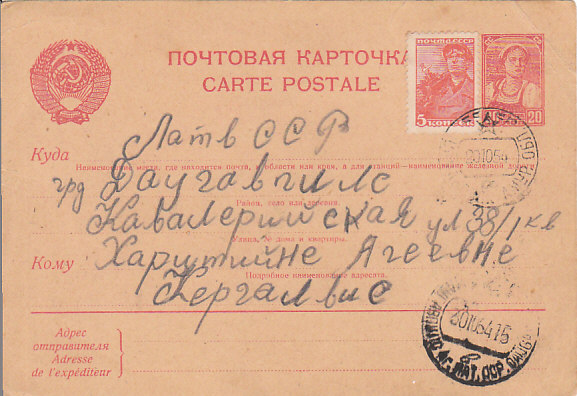 ПОЧТОВАЯ КАРТОЧКА
CARTE POSTALE
ПОЧТА СССР
5 КОПЕЕК
20
Латв ССР
Куда
Наименование места, где находится почта, и области или края, а для станций—наименование железной дороги
гор Даугавпилс
Район, село или деревня.
Кавалерийская ул 38/1 кв
Улица, № дома и квартиры.
Кому Харитийне Агеевне
Подробное наименование адресата.
Кергалвис
Адрес
отправителя
Adresse
de l'expéditeur
201054 16
ЛАТ. ССР